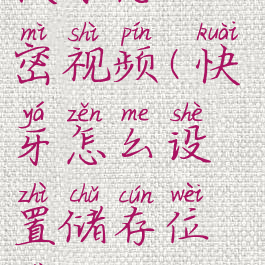 mì shì pín kuài
密视频(快
yá zěn me shè
牙怎么设
zhì chǔ cún wèi
置储存位